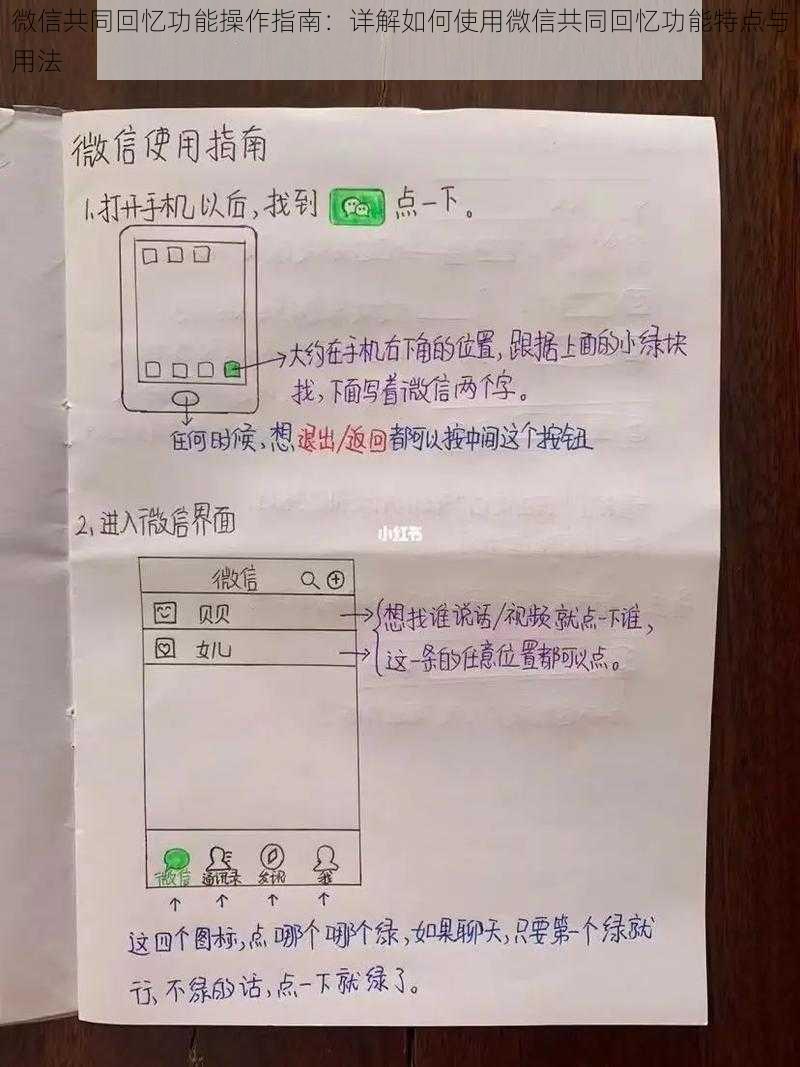 微信共同回忆功能操作指南：详解如何使用微信共同回忆功能特点与
用法
微信使用指南
1、打开手机以后，找到 点一下。
大约在手机右下角的位置，跟据上面的小绿块
找，下面写着微信两个字。
任何时候，想退出/返回都可以按中间这个按钮
2、进入微信界面
小红书
微信
贝贝
女儿
想找谁说话/视频就点一下谁，
这一条的任意位置都可以点。
微信 通讯录 发现 我
这四个图标，点哪个哪个绿，如果聊天，只要第一个绿就
行，不绿的话，点一下就绿了。